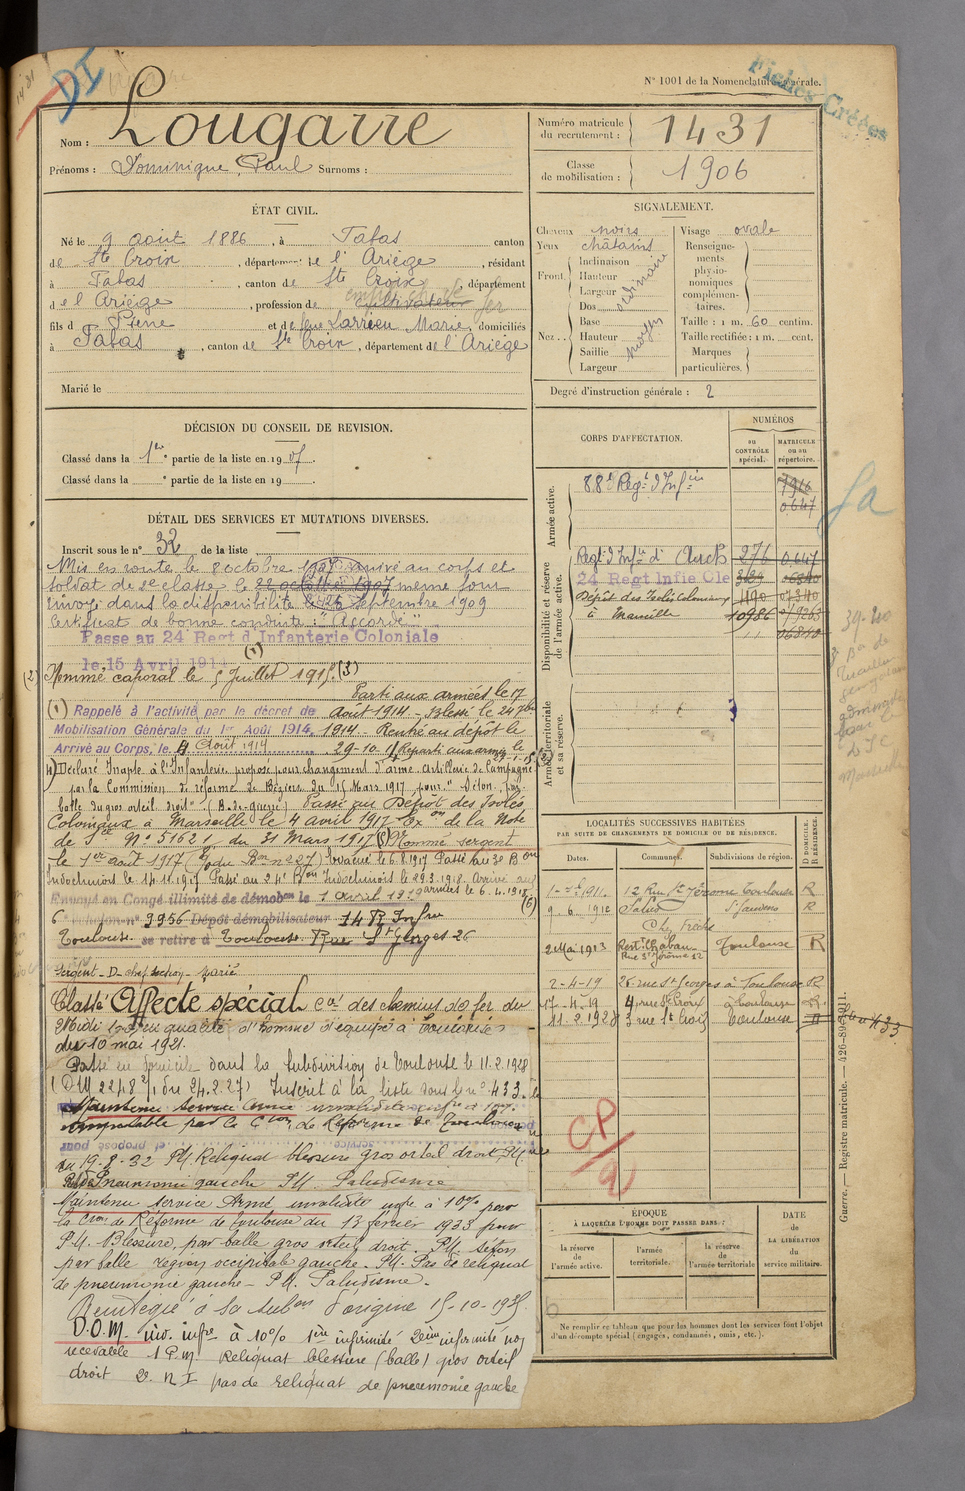 N° 1001 de la Nomenclature générale.
Fiches Créées
DI
Nom : Lougarre
Prénoms : Dominique, Paul Surnoms :
Numéro matricule du recrutement : 1431
Classe de mobilisation : 1906
ÉTAT CIVIL.
Né le 9 août 1886, à Tabas canton
de Ste Croix, département de l'Ariège, résidant
à Tabas, canton de Ste Croix, département
de l'Ariège, profession de cultivateur
fils de Pierre et de feue Larrieu Marie, domiciliés
à Tabas, canton de Ste Croix, département de l'Ariège
Marié le
SIGNALEMENT.
Cheveux noirs
Yeux châtains
Front Inclinaison
Hauteur
Largeur
ordinaire
Nez Dos
Base
Hauteur
Saillie
Largeur
moyen
Visage ovale
Renseignements physionomiques complémentaires.
Taille : 1 m. 60 centim.
Taille rectifiée : 1 m. cent.
Marques particulières.
Degré d'instruction générale : 2
DÉCISION DU CONSEIL DE REVISION.
Classé dans la 1re partie de la liste en 1907.
Classé dans la e partie de la liste en 19
DÉTAIL DES SERVICES ET MUTATIONS DIVERSES.
Inscrit sous le n° 32 de la liste
Mis en route le 8 octobre 1907 arrivé au corps et
soldat de 2e classe le 22 octobre 1907 meme jour
envoyé dans la disponibilité le 25 Septembre 1909
Certificat de bonne conduite : "Accordé"
Passe au 24 Regt d'Infanterie Coloniale
le 15 Avril 1914 (1)
(2) Nommé caporal le 5 Juillet 1915. (3)
Parti aux armées le 17
(1) Rappelé à l'activité par le décret de août 1914 - Blessé le 24 7bre
Mobilisation Générale du 1er Août 1914, 1914. Rentré au dépôt le
Arrivé au Corps, le 4 Août 1914 29-10-14 Reparti aux armées le
4) Déclaré Inapte à l'Infanterie, proposé pour changement d'arme, artillerie de Campagne
par la Commission de réforme de Béziers du 15 Mars 1917 pour "Séton, par
balle du gros orteil droit" (B. de guerre) Passé au Dépôt des Isolés
Coloniaux à Marseille le 4 avril 1917 Exon de la Note
de Sce N° 5162 du 31 Mars 1917 (5) Nommé sergent
le 1er août 1917 Evacué le 6.8.1917 Passé au 3e Bon
Indochinois le 14.11.1917 Passé au 24e Bon Indochinois le 29.3.1918. Arrivé aux
armées le 6.4.1918 (6)
Envoyé en Congé illimité de démobon le 1 Avril 1919
6e échelon n° 9956 Dépôt démobilisateur 14 R Infrie
Toulouse se retire à Toulouse Rue St Georges 26
Sergent - D - chef section - marié
Classé Affecté spécial Cie des chemins de fer du
Midi en qualité d'homme d'équipe à Toulouse
du 10 mai 1921.
Passé en domicile dans la subdivision de Toulouse le 11.2.1928
(DM 2248 2/1 du 24.2.27) Inscrit à la liste sous le n° 433
Maintenu service armé
imputable par la Cion de Réforme de Toulouse
du 19-8-32 PM. Reliquat blessure gros orteil droit, PM.
Pneumonie gauche PM. Paludisme
Maintenu service Armé invalidité infre à 10% par
la Cion de Réforme de Toulouse du 13 février 1933 pour
PM. Blessure, par balle gros orteil droit. PM. Séton
par balle région occipitale gauche. PM. Pas de reliquat
de pneumonie gauche - PM. Paludisme.
Réintégré à sa subon d'origine 15-10-1935
D.O.M. inv. infre à 10% 1ère infirmité 2ème infirmité non
recevable 1 P.M. Reliquat blessure (balle) gros orteil
droit 2. N I pas de reliquat de pneumonie gauche
CORPS D'AFFECTATION.
NUMÉROS
au CONTRÔLE spécial.
MATRICULE ou au répertoire.
Armée active.
88e Regt d'Infie 7916
0647
Disponibilité et réserve de l'armée active.
Regt d'Infie d'Auch 276 0647
24 Regt Infie Cle
Dépôt des Isolés Coloniaux 490
à Marseille 10986
Armée territoriale et sa réserve.
LOCALITÉS SUCCESSIVES HABITÉES
PAR SUITE DE CHANGEMENTS DE DOMICILE OU DE RÉSIDENCE.
Dates. Communes. Subdivisions de région. D DOMICILE. R RÉSIDENCE.
1911. 12 Rue St Jérome Toulouse R
9.6.1912 Salies St Gaudens R
2 Mai 1913 Toulouse R
Rue St Jérome 12
2-4-19 26 rue St Georges à Toulouse R
17-4-19 4, rue Ste Croix à Toulouse R
11.2.1928 3 rue Ste Croix Toulouse D
CP/9
ÉPOQUE
À LAQUELLE L'HOMME DOIT PASSER DANS :
la réserve de l'armée active.
l'armée territoriale.
la réserve de l'armée territoriale
DATE de LA LIBÉRATION du service militaire.
Ne remplir ce tableau que pour les hommes dont les services font l'objet
d'un décompte spécial (engagés, condamnés, omis, etc.).
Guerre. — Registre matricule. — 426-89-1911.